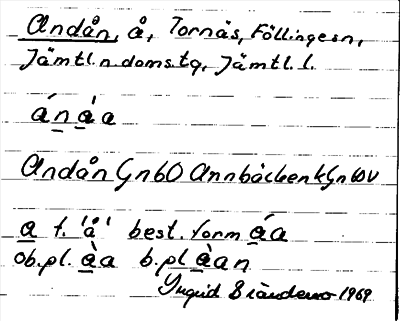 Andån, å, Tornäs, Föllinge sn,
Jämtl. n. doms. tg, Jämtl. l.
ánàa
Andån Gnbo Annbäcken kGnbov
a f. 'å' best. form áa
ob.pl. àa b.pl àan
Ingrid 1969